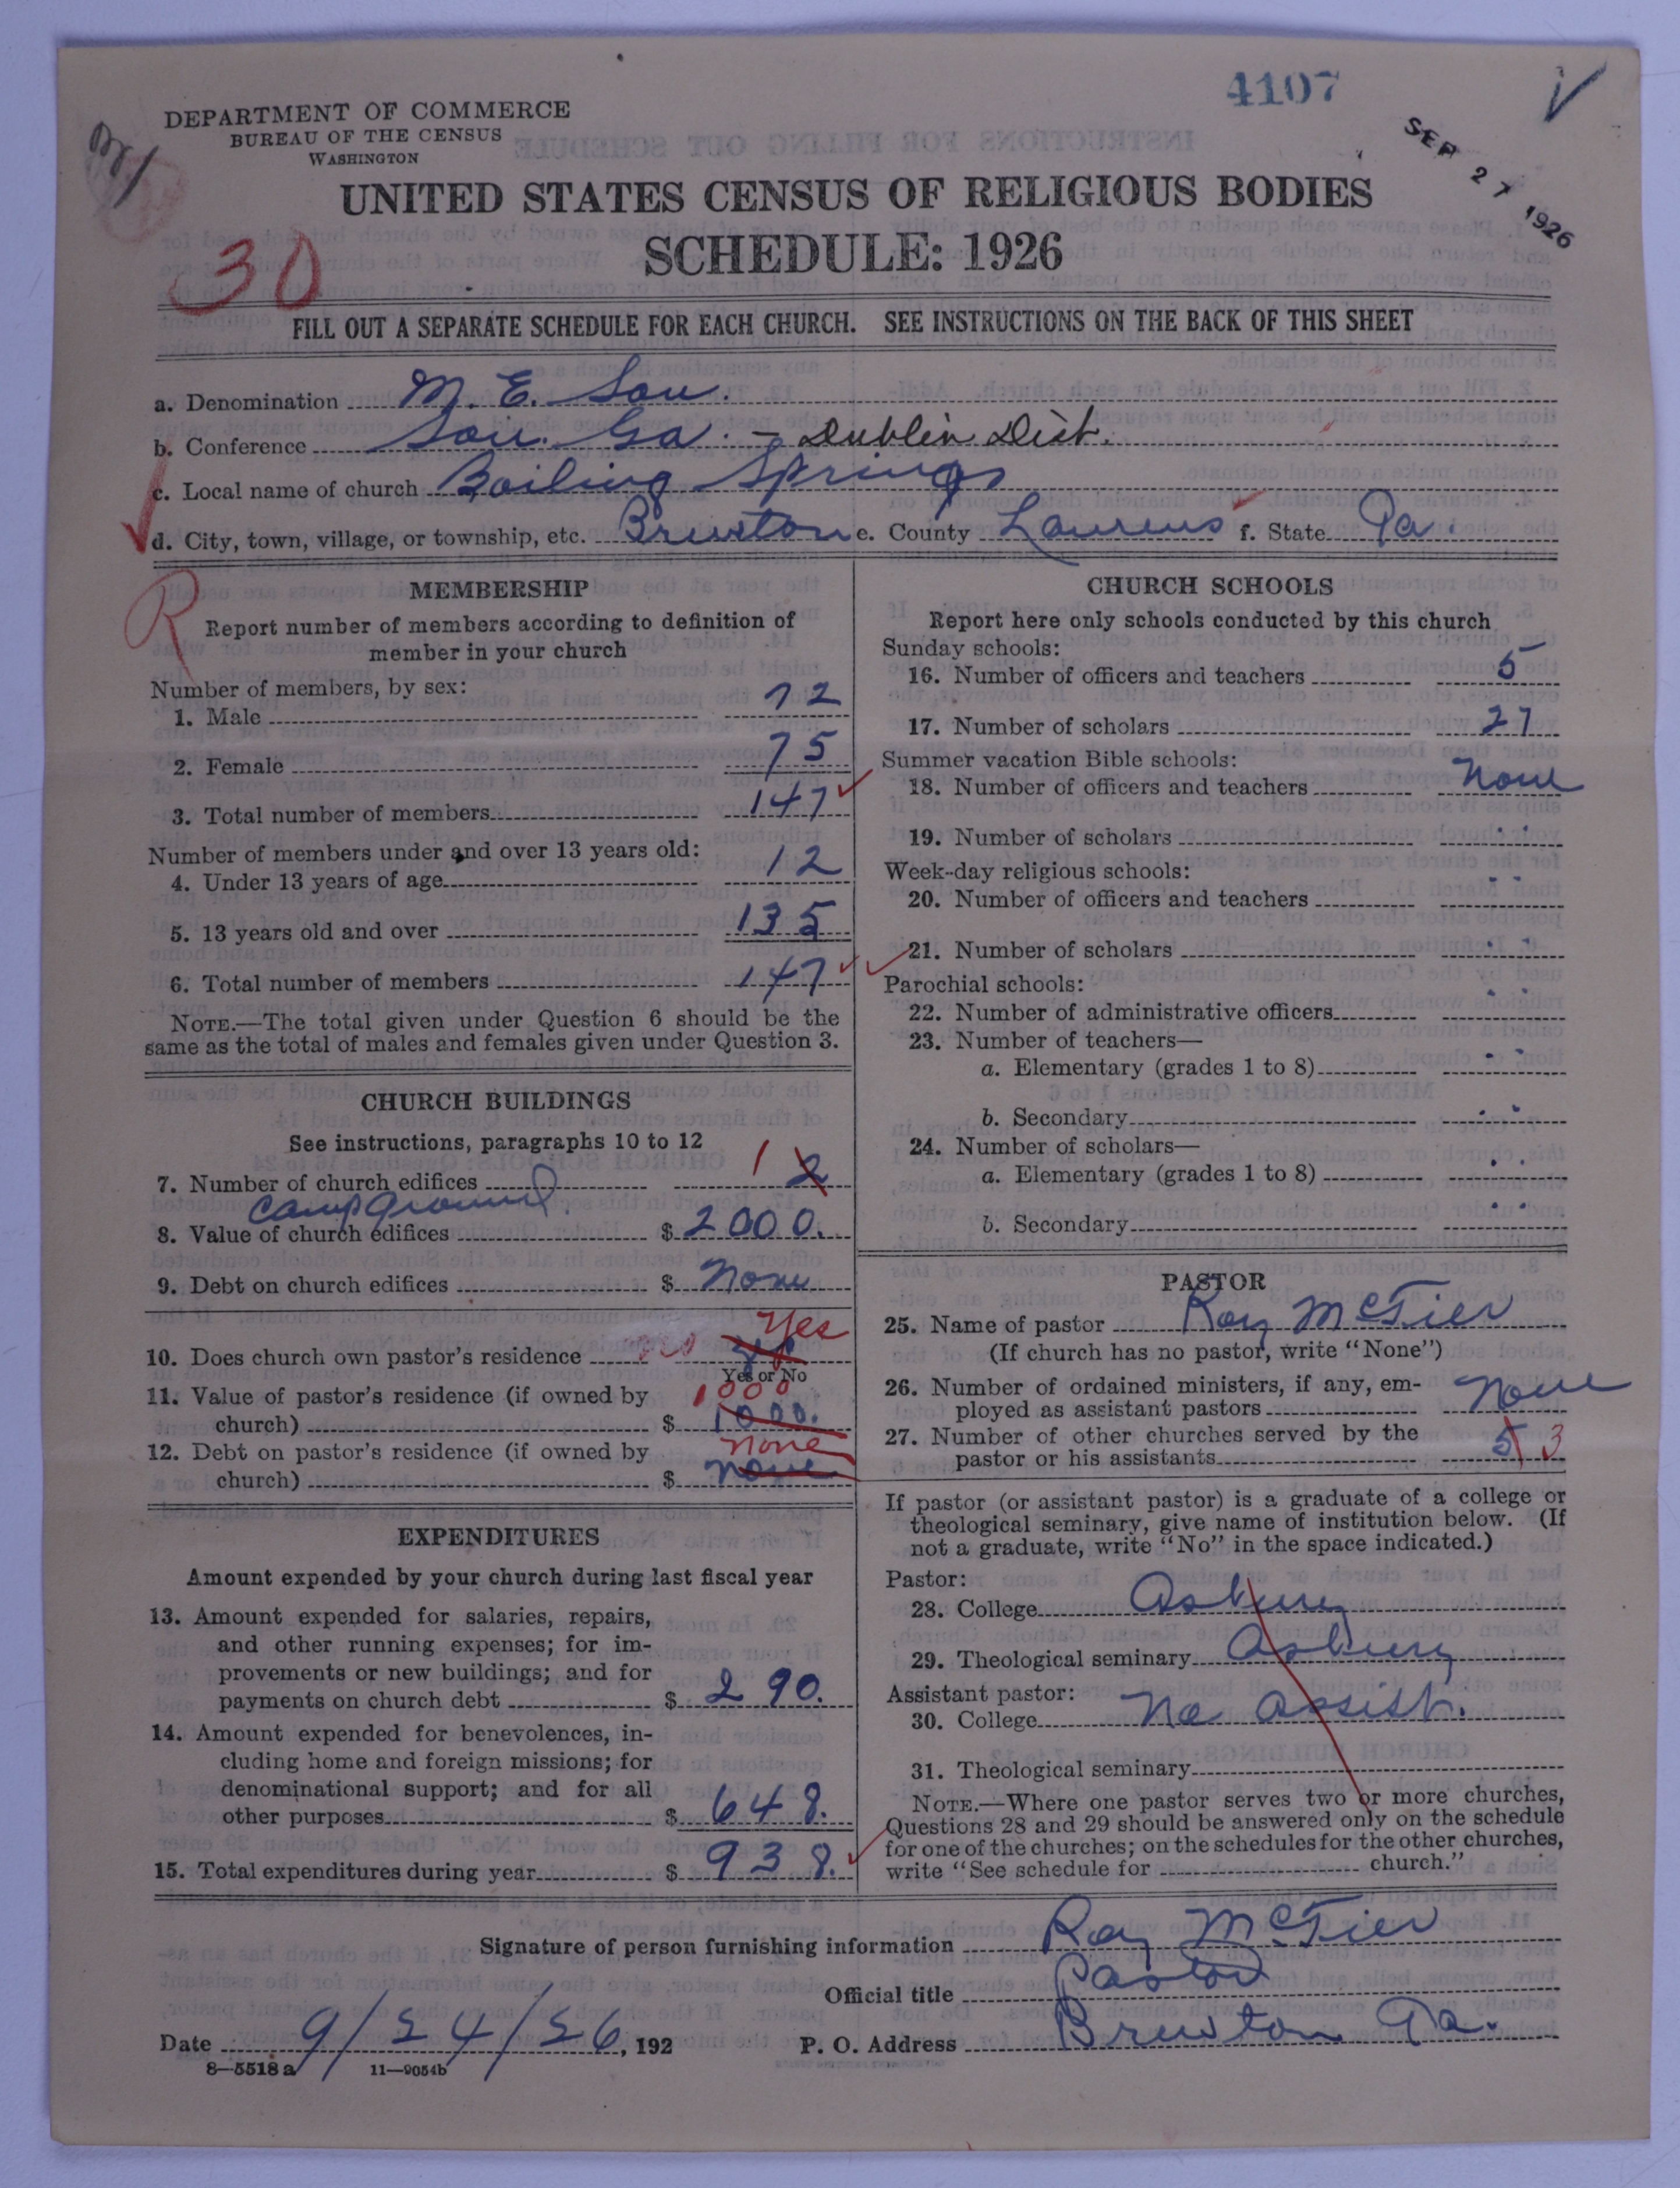 4107
SEP 27 1926
DEPARTMENT OF COMMERCE
BUREAU OF THE CENSUS
WASHINGTON
UNITED STATES CENSUS OF RELIGIOUS BODIES
SCHEDULE: 1926
30
FILL OUT A SEPARATE SCHEDULE FOR EACH CHURCH. SEE INSTRUCTIONS ON THE BACK OF THIS SHEET
a. Denomination M. E. Sou.
b. Conference Sou. Ga. - Dublin Dist.
c. Local name of church Boiling Springs
d. City, town, village, or township, etc. Brewton e. County Laurens f. State Ga.
R
MEMBERSHIP
Report number of members according to definition of
member in your church
Number of members, by sex:
1. Male 72
2. Female 75
3. Total number of members 147
Number of members under and over 13 years old:
4. Under 13 years of age 12
5. 13 years old and over 135
6. Total number of members 147
NOTE.—The total given under Question 6 should be the
same as the total of males and females given under Question 3.
CHURCH BUILDINGS
See instructions, paragraphs 10 to 12
7. Number of church edifices 1 2
Camp ground.
8. Value of church edifices $ 2000.
9. Debt on church edifices $ None
10. Does church own pastor's residence Yes
Yes or No
11. Value of pastor's residence (if owned by 1000
church) $ 1000.
12. Debt on pastor's residence (if owned by none
church) $ none
EXPENDITURES
Amount expended by your church during last fiscal year
13. Amount expended for salaries, repairs,
and other running expenses; for im-
provements or new buildings; and for
payments on church debt $ 290.
14. Amount expended for benevolences, in-
cluding home and foreign missions; for
denominational support; and for all
other purposes $ 648.
15. Total expenditures during year $ 938.
CHURCH SCHOOLS
Report here only schools conducted by this church
Sunday schools:
16. Number of officers and teachers 5
17. Number of scholars 27
Summer vacation Bible schools:
18. Number of officers and teachers None
19. Number of scholars " "
Week-day religious schools:
20. Number of officers and teachers " "
21. Number of scholars " "
Parochial schools:
22. Number of administrative officers " "
23. Number of teachers—
a. Elementary (grades 1 to 8) " "
b. Secondary " "
24. Number of scholars—
a. Elementary (grades 1 to 8) " "
b. Secondary " "
PASTOR
25. Name of pastor Roy McTier
(If church has no pastor, write "None")
26. Number of ordained ministers, if any, em-
ployed as assistant pastors None
27. Number of other churches served by the
pastor or his assistants 5 3
If pastor (or assistant pastor) is a graduate of a college or
theological seminary, give name of institution below. (If
not a graduate, write "No" in the space indicated.)
Pastor:
28. College Asbury
29. Theological seminary Asbury
Assistant pastor:
30. College No Assist.
31. Theological seminary
NOTE.—Where one pastor serves two or more churches,
Questions 28 and 29 should be answered only on the schedule
for one of the churches; on the schedules for the other churches,
write "See schedule for church."
Signature of person furnishing information Roy McTier
Official title Pastor
Date 9/24/26, 192 P. O. Address Brewton Ga.
8—5518 a 11—9054b